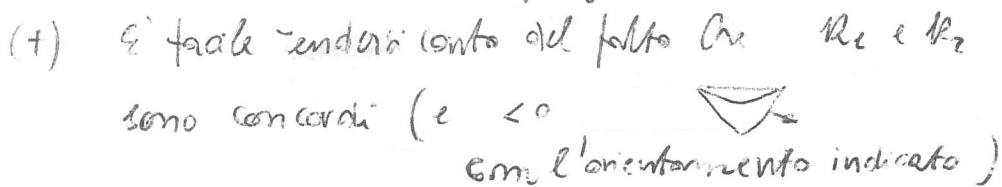 (+) È facile rendersi conto del fatto che k₁ e k₂
sono concordi (e < 0
con l'orientamento indicato)